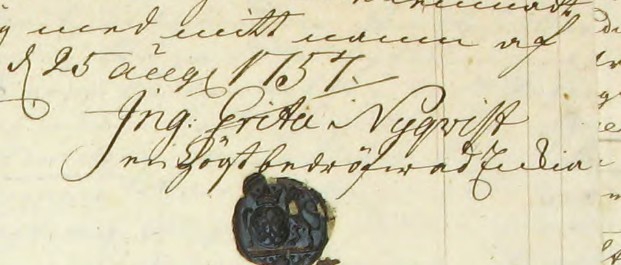 med mitt namn af
d 25 aug 1757.
Ing: Grita Nyqvist
en högstbedröfwad Enkia